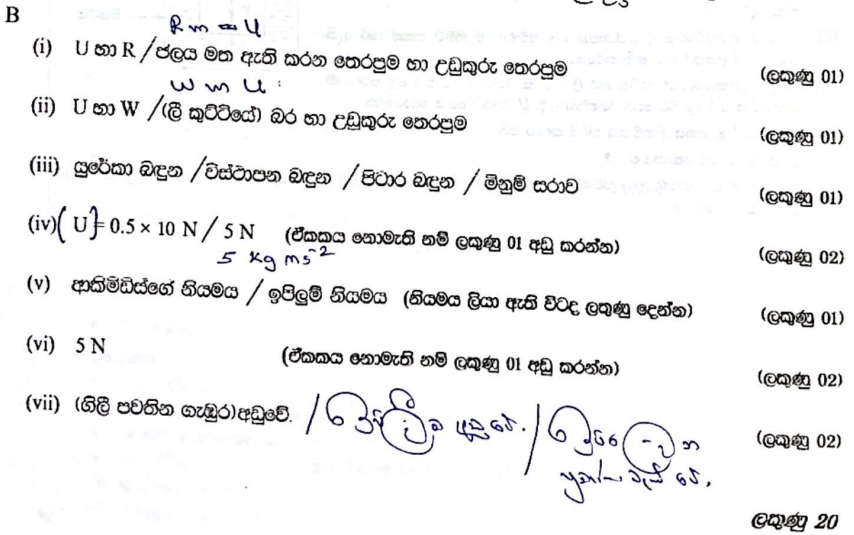 B
R හා U
(i) U හා R / ජලය මත ඇති කරන තෙරපුම හා උඩුකුරු තෙරපුම (ලකුණු 01)
W හා U
(ii) U හා W / (ලී කුට්ටියේ) බර හා උඩුකුරු තෙරපුම (ලකුණු 01)
(iii) යුරේකා බඳුන / විස්ථාපන බඳුන / පිටාර බඳුන / මිනුම් සරාව (ලකුණු 01)
(iv) (U) = 0.5 × 10 N / 5 N (ඒකකය නොමැති නම් ලකුණු 01 අඩු කරන්න) (ලකුණු 02)
5 kg ms⁻²
(v) ආකිමිඩිස්ගේ නියමය / ඉපිලුම් නියමය (නියමය ලියා ඇති විටද ලකුණු දෙන්න) (ලකුණු 01)
(vi) 5 N (ඒකකය නොමැති නම් ලකුණු 01 අඩු කරන්න) (ලකුණු 02)
(vii) (ගිලී පවතින ගැඹුර) අඩුවේ. / අඩු වේ. / (ලකුණු 02)
වැඩි වේ.
ලකුණු 20